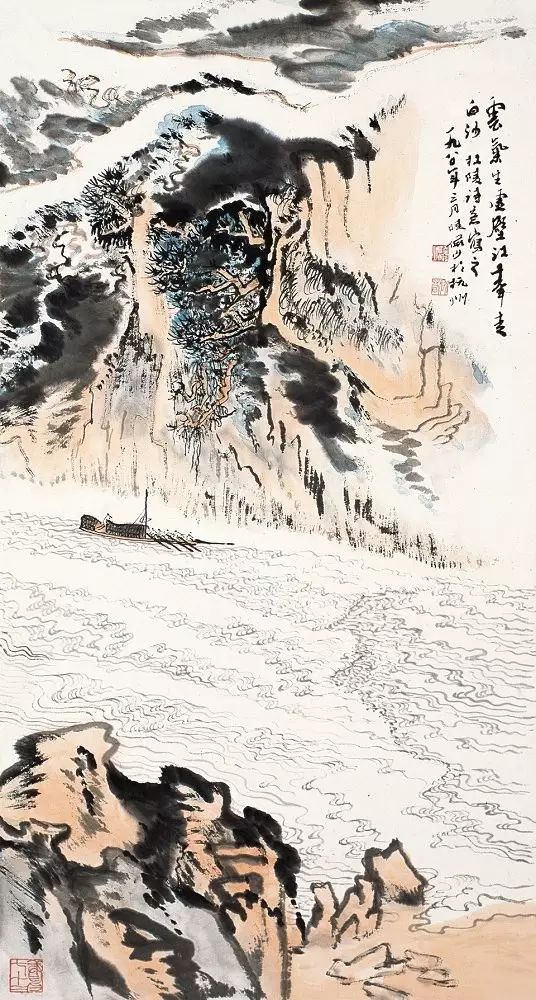 雲氣生虛壁江聲走
白沙 杜陵詩意寫之
一九八〇年三月陸儼少於杭州